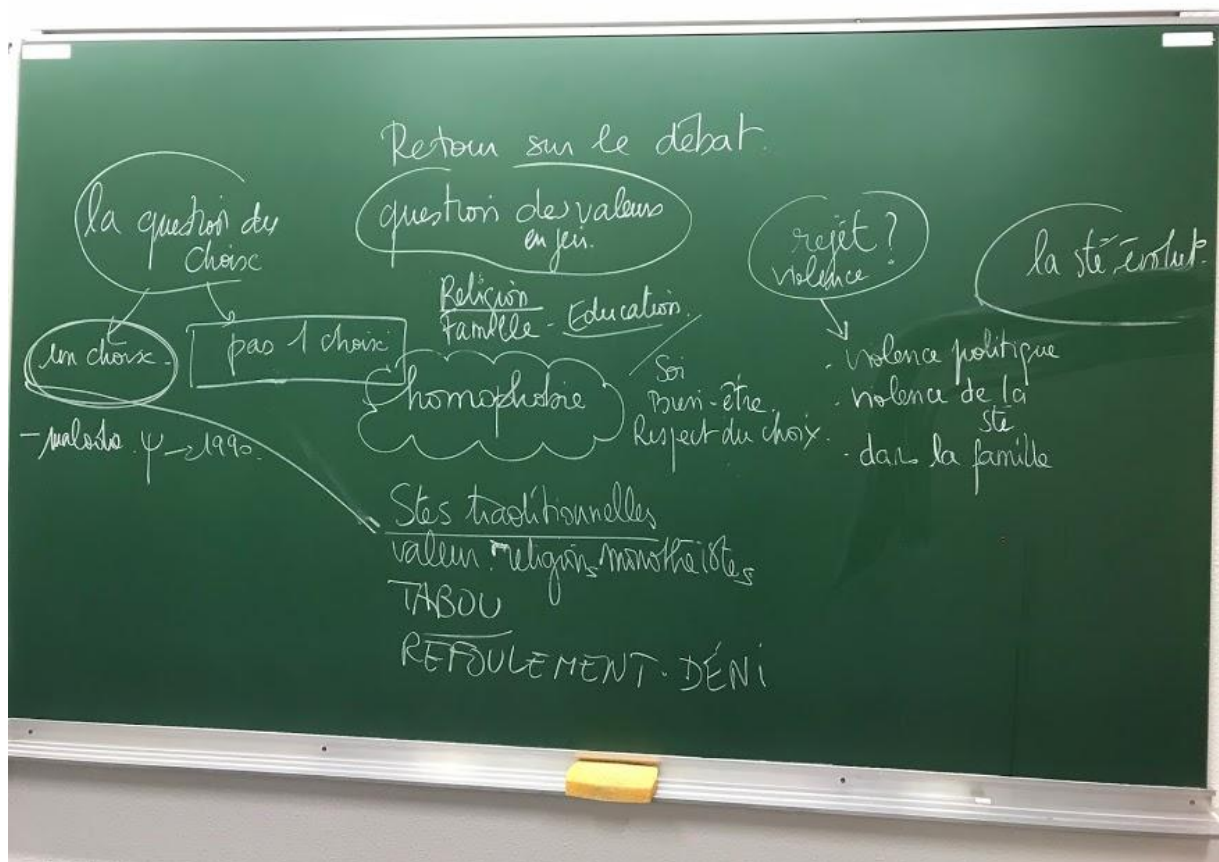 Retour sur le débat.
la question du
choix
un choix.
pas 1 choix
- maladie ψ → 1990.
question des valeurs
en jeu.
Religion
Famille - Education.
homophobie
Soi
Bien-être.
Respect du choix.
Stés traditionnelles
valeur religions monothéistes
TABOU
REFOULEMENT. DÉNI
rejet ?
violence ?
. violence politique
. violence de la
sté
. dans la famille
la sté évolue.